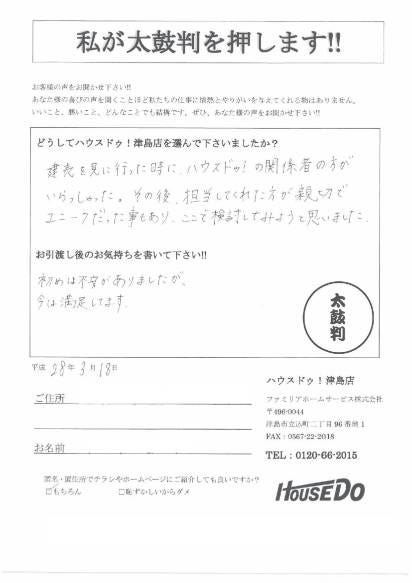 私が太鼓判を押します!!
お客様の声をお聞かせ下さい!!
あなた様の喜びの声を聞くことほど私たちの仕事に情熱とやりがいを与えてくれる物はありません。
いいこと、悪いこと、どんなことでも結構です。ぜひ、あなた様の声をお聞かせ下さい!!
どうしてハウスドゥ!津島店を選んで下さいましたか?
建売を見に行った時に、ハウスドゥ!の関係者の方が
いらっしゃった。その後、担当してくれた方が親切で
ユニークだった事もあり、ここで検討してみようと思いました。
お引渡し後のお気持ちを書いて下さい!!
初めは不安がありましたが、
今は満足してます。
太鼓判
平成 28年 3月 18日
ご住所
お名前
ハウスドゥ!津島店
ファミリアホームサービス株式会社
〒496-0044
津島市立込町二丁目96番地1
FAX:0567-22-2018
TEL:0120-66-2015
匿名・匿住所でチラシやホームページにご紹介しても良いですか?
□もちろん □恥ずかしいからダメ
HOUSEDO